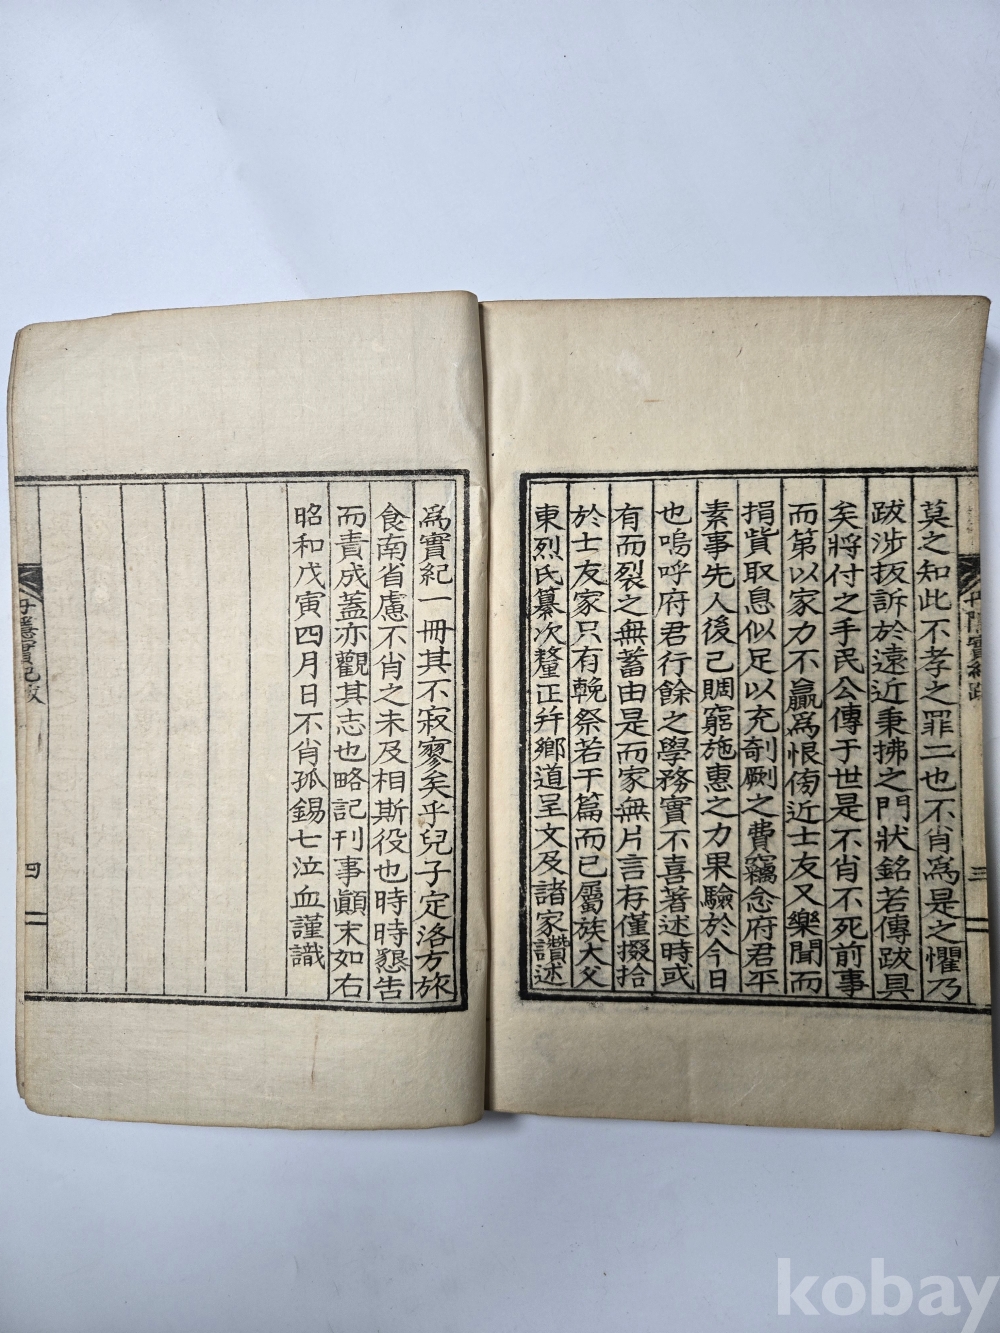 莫之知此不孝之罪二也不肖爲是之懼乃
跋涉扳訴於遠近秉拂之門狀銘若傳跋具
矣將付之手民公傳于世是不肖不死前事
而第以家力不贏爲恨傍近士友又樂聞而
捐貲取息似足以充剞劂之費竊念府君平
素事先人後己賙窮施惠之力果驗於今日
也嗚呼府君行餘之學務實不喜著述時或
有而裂之無蓄由是而家無片言存僅掇拾
於士友家只有輓祭若干篇而已屬族大父
東烈氏纂次釐正幷鄉道呈文及諸家讚述
三
爲實紀一冊其不寂寥矣乎兒子定洛方旅
食南省慮不肖之未及相斯役也時時懇告
而責成蓋亦觀其志也略記刊事顚末如右
昭和戊寅四月日不肖孤錫七泣血謹識
丹隱實紀跋
四
kobay